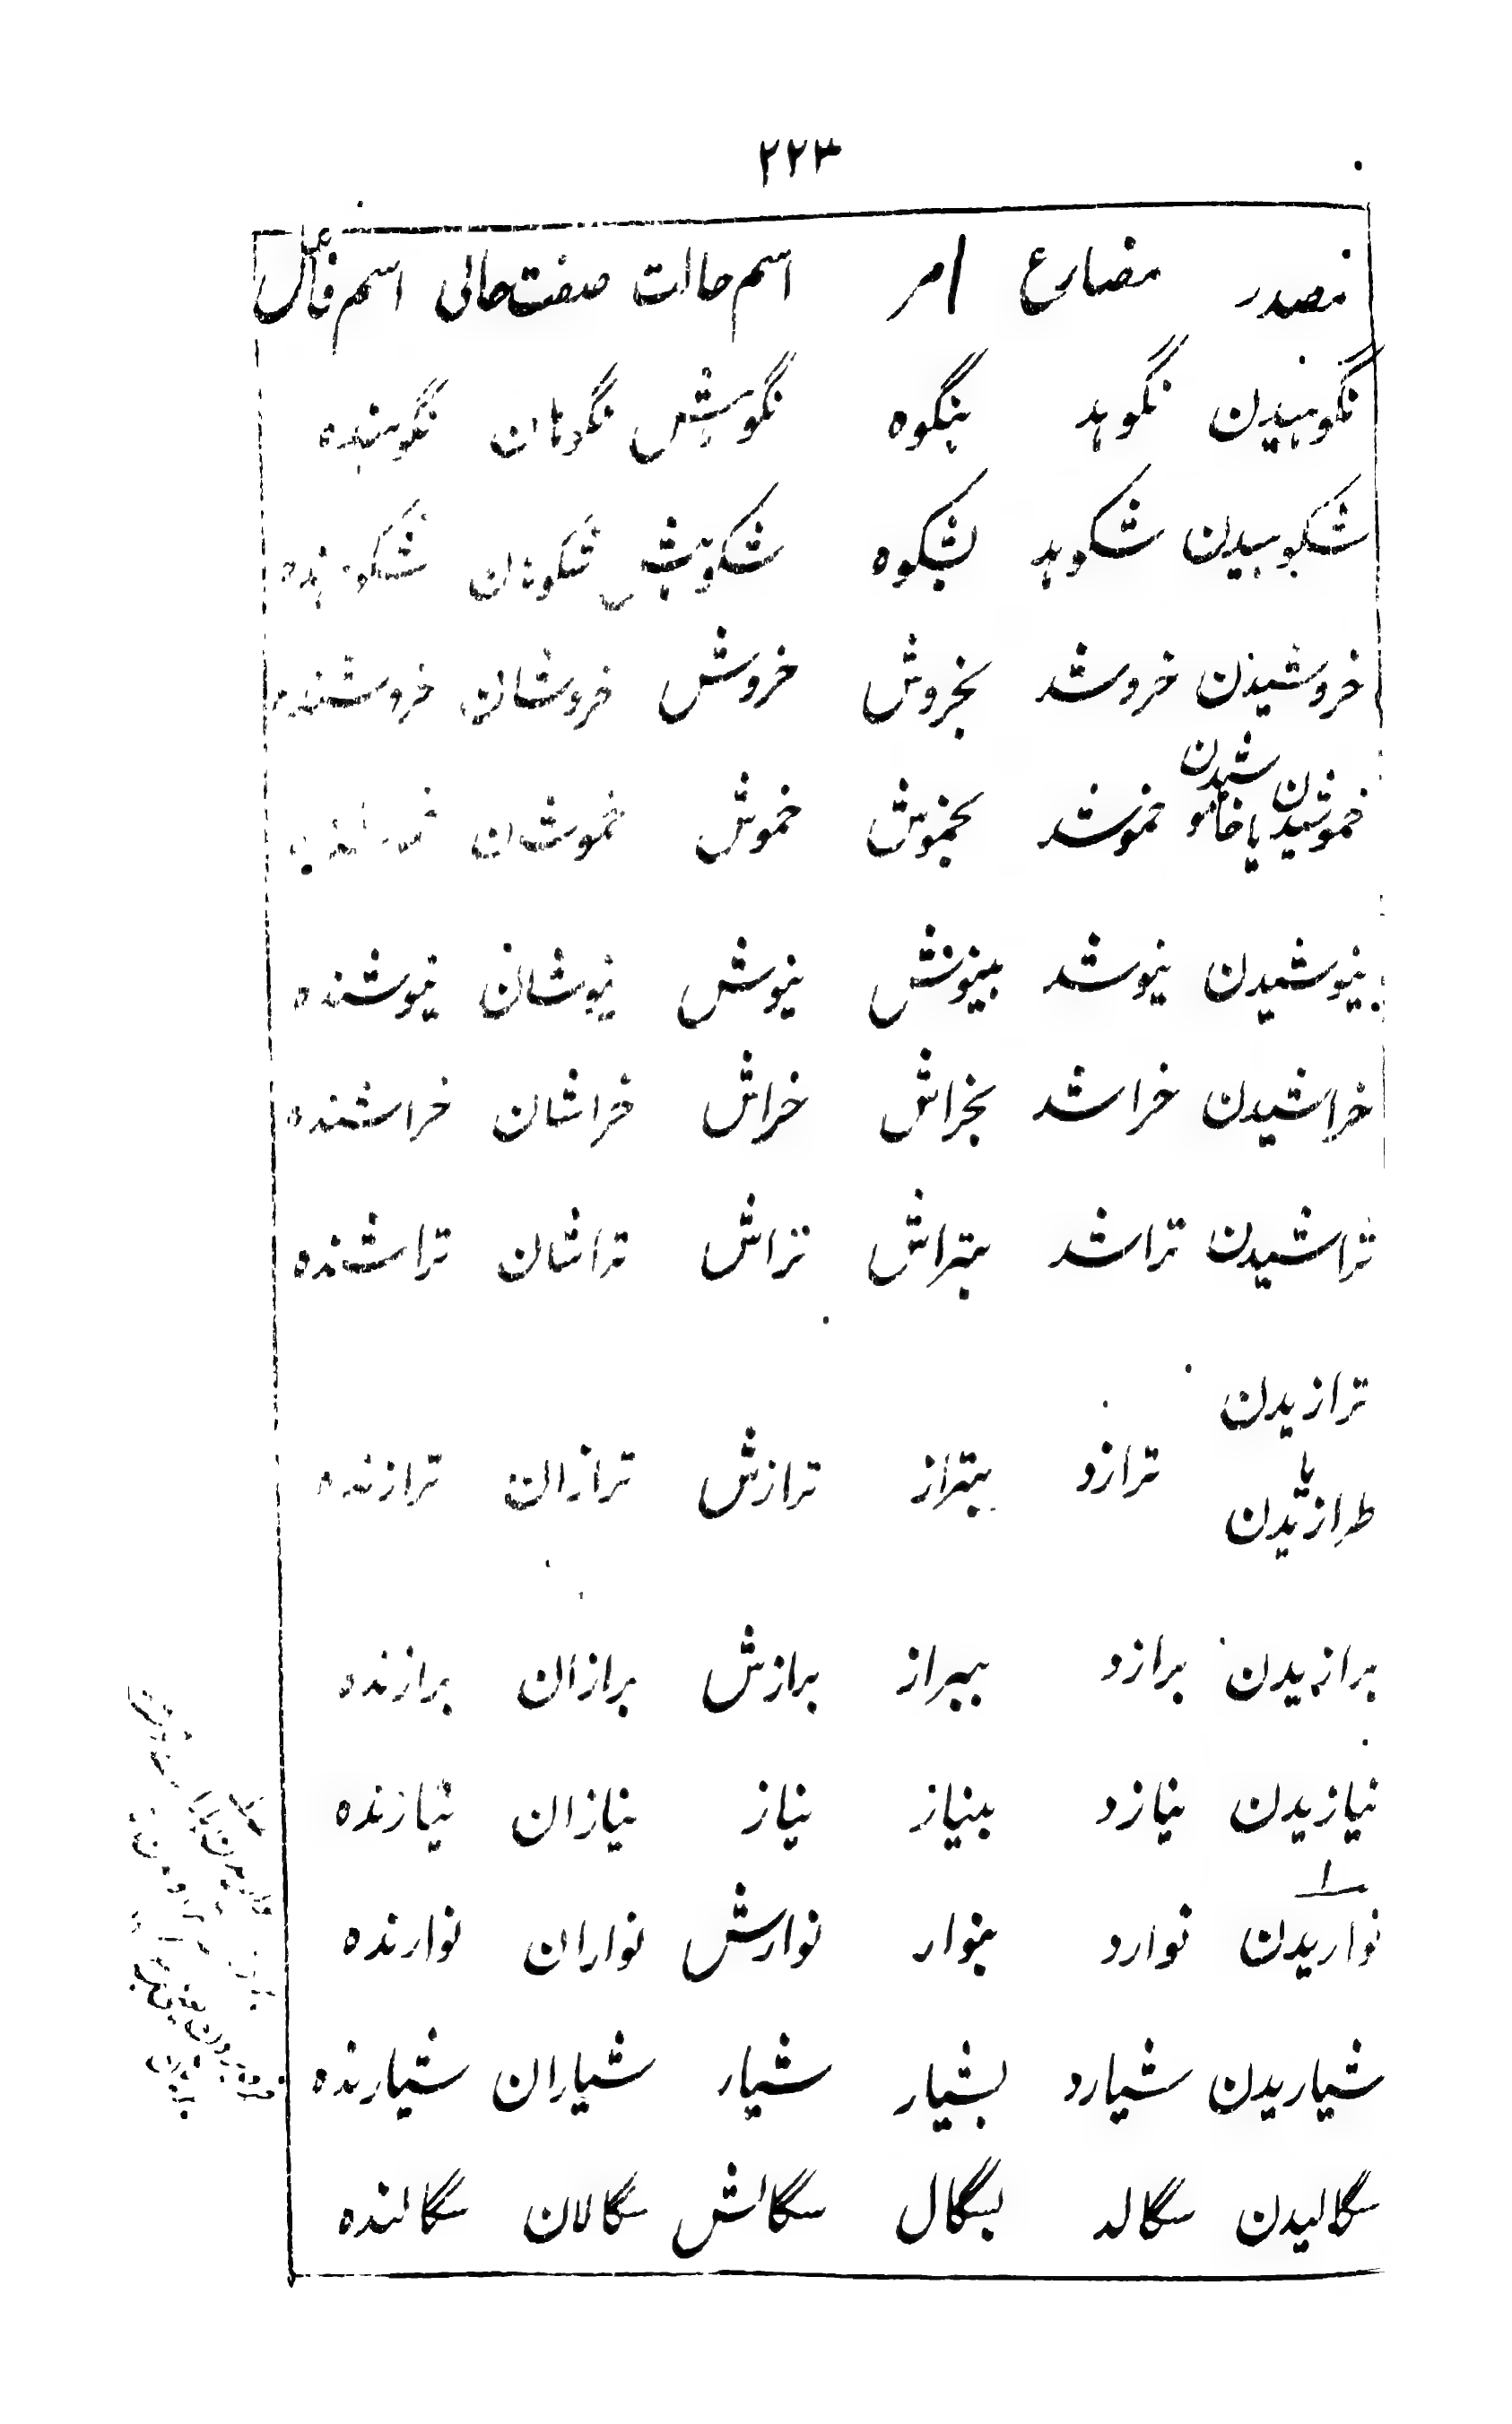 ۲۲۳
مصدر مضارع امر اسم حالت صفت حالی اسم فاعل
نگوهیدن نگوهد بنگوه نگوهش نگوهان نگوهنده
شکوهیدن شکوهد بشکوه شکوهش شکوهان شکوهنده
خروشیدن خروشد بخروش خروش خروشان خروشنده
خموشیدن یا خاموشیدن خموشد بخموش خموش خموشان
نیوشیدن نیوشد بنیوش نیوش نیوشان نیوشنده
خراشیدن خراشد بخراش خراش خراشان خراشنده
تراشیدن تراشد بتراش تراش تراشان تراشنده
ترازیدن
یا
طرازیدن ترازد بتراز ترازش ترازان ترازنده
برازیدن برازد ببراز برازش برازان برازنده
نیازیدن نیازد بنیاز نیاز نیازان نیازنده
نواریدن نوارد بنوار نوارش نواران نوارنده
شیاریدن شیارد بشیار شیار شیاران شیارنده
سگالیدن سگالد بسگال سگالش سگالان سگالنده